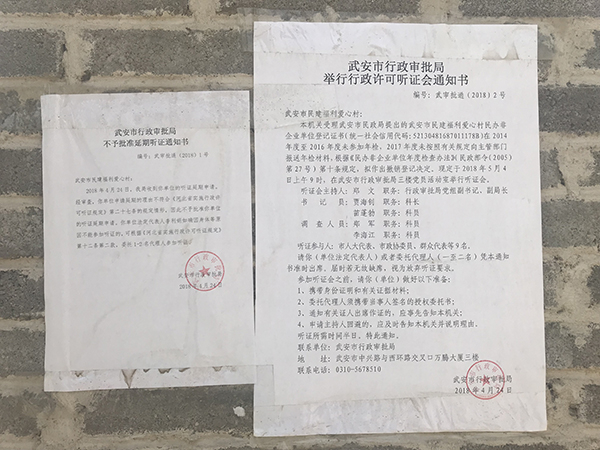 武安市行政审批局
不予批准延期听证通知书
编号：武审批函（2018）1号
武安市民建福利爱心村：
2018年4月24日，我局收到你单位的听证延期申请，
因不能参加听证的，可根据《河北省实施行政许可听证规定》
第十二条第二款，委托1-2名代理人参加听证。
武安市行政审批局
2018年4月24日
武安市行政审批局
举行行政许可听证会通知书
编号：武审批通（2018）2号
武安市民建福利爱心村：
本机关受理武安市民政局提出的武安市民建福利爱心村民办非
企业单位登记证书（统一社会信用代码：52130481687011178B）在2014
年度至2016年度未参加年检，2017年度未按照有关规定向主管部门
报送年检材料，根据《民办非企业单位年度检查办法》（民政部令（2005）
第27号）第十条规定，拟作出撤销登记决定，现定于2018年5月4
日上午9时，在武安市行政审批局三楼党员活动室举行听证会。
听证会主持人：郑 文 职务：行政审批局党组副书记、副局长
书 记 员：贾海钊 职务：科长
苗蓬勃 职务：科员
调 查 人 员：郑 军 职务：科员
李海江 职务：科员
听证参与人：市人大代表、市政协委员、群众代表等9名。
请你（单位法定代表人）或者委托代理人（一至二名）凭本通知
书准时出席，届时若无故缺席，视为放弃听证要求。
参加听证会之前，请你（单位）做好以下准备：
1、携带身份证明和有关证据材料；
2、委托代理人须携带当事人签名的授权委托书；
3、通知有关证人出席作证的，应事先告知本机关；
4、申请主持人回避的，应及时告知本机关并说明理由。
听证所需时间半日。特此通知。
联系单位：武安市行政审批局
地 址：武安市中兴路与西环路交叉口万腾大厦三楼
联系电话：0310-5678510
武安市行政审批局
2018年4月24日